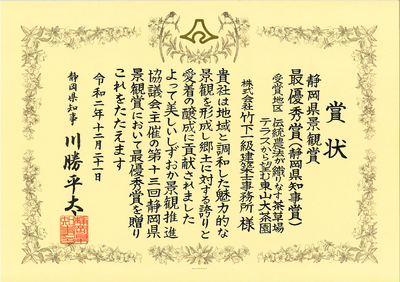 賞状
静岡県景観賞
最優秀賞(静岡県知事賞)
受賞地区 伝統農法が織りなす茶草場
テラスから望む東山大茶園
株式会社竹下一級建築士事務所 様
貴社は地域と調和した魅力的な
景観を形成し郷土に対する誇りと
愛着の醸成に貢献されました
よって美しいしずおか景観推進
協議会主催の第十三回静岡県
景観賞において最優秀賞を贈り
これをたたえます
令和二年十二月二十一日
静岡県知事 川勝平太